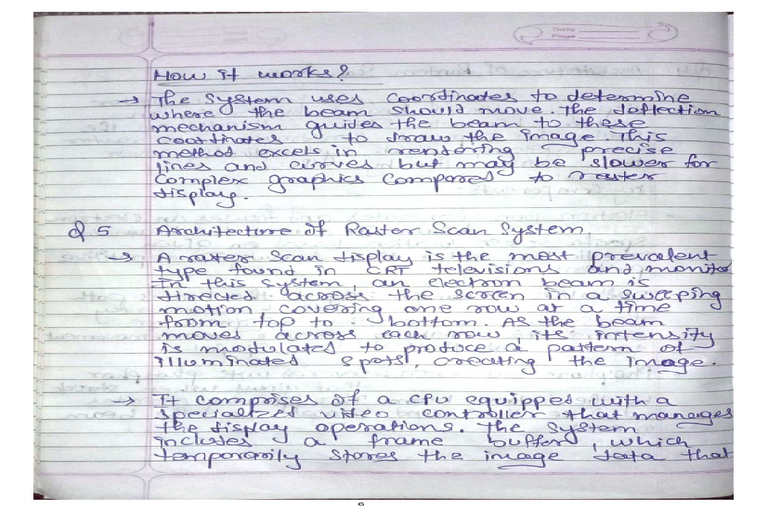 How it works?
→ The system uses coordinates to determine
where the beam should move. The deflection
mechanism guides the beam to these
coordinates to draw the image. This
method excels in rendering precise
lines and curves but may be slower for
complex graphics compared to raster
display.
Q 5 Architecture of Raster Scan System
→ A raster scan display is the most prevalent
type found in CRT televisions and monitor
In this system, an electron beam is
directed across the screen in a sweeping
motion covering one row at a time
from top to bottom. As the beam
moves across each row its intensity
is modulated to produce a pattern of
illuminated spots, creating the image.
→ It comprises of a CPU equipped with a
specialized video controller that manages
the display operations. The system
includes a frame buffer, which
temporarily stores the image data that
6